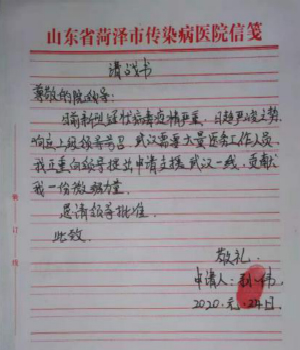 山东省菏泽市传染病医院信笺
请战书
尊敬的院领导:
目前新型冠状病毒疫情严重,日趋严峻之势
响应上级领导号召,武汉需要大量医务工作人员,
我正重向领导提出申请支援武汉一线,贡献
我一份微薄力量。
恳请领导批准.
此致
敬礼.
申请人:
2020.元.24日.
装订线